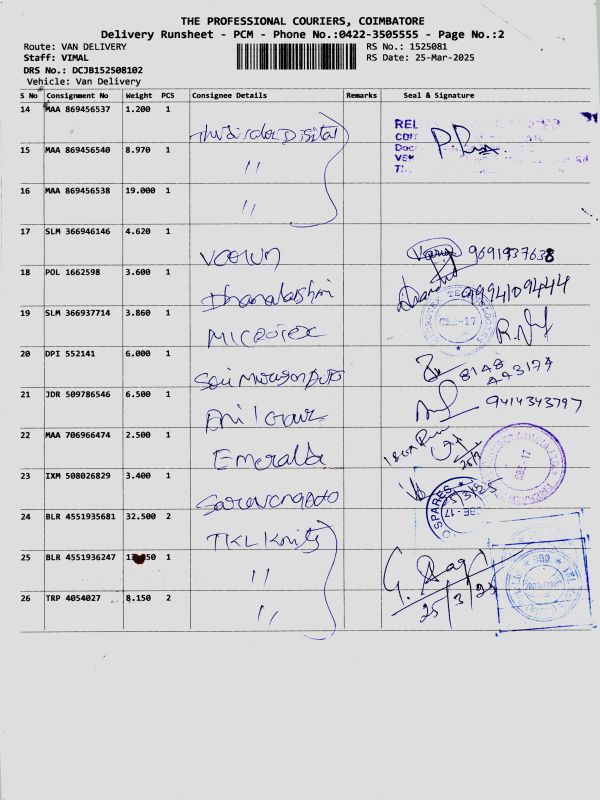 THE PROFESSIONAL COURIERS, COIMBATORE
Delivery Runsheet - PCM - Phone No.:0422-3505555 - Page No.:2
Route: VAN DELIVERY RS No.: 1525081
Staff: VIMAL RS Date: 25-Mar-2025
DRS No.: DCJB152508102
Vehicle: Van Delivery
S No Consignment No Weight PCS Consignee Details Remarks Seal & Signature
14 MAA 869456537 1.200 1
Digital
15 MAA 869456540 8.970 1
"
16 MAA 869456538 19.000 1
"
17 SLM 366946146 4.620 1
Varun 9691937638
18 POL 1662598 3.600 1
Dhanalakshmi 9994109444
19 SLM 366937714 3.860 1
MICROTEX CBE-17
20 DPI 552141 6.000 1
Sai Murugan Auto 8148 493174
21 JDR 509786546 6.500 1
Anil 9414343797
22 MAA 706966474 2.500 1
Emerald
23 IXM 508026829 3.400 1
Saravana Auto SPARES CBE-17
24 BLR 4551935681 32.500 2
TKL Knits
25 BLR 4551936247 1 1
"
25/3/25
26 TRP 4054027 8.150 2
"